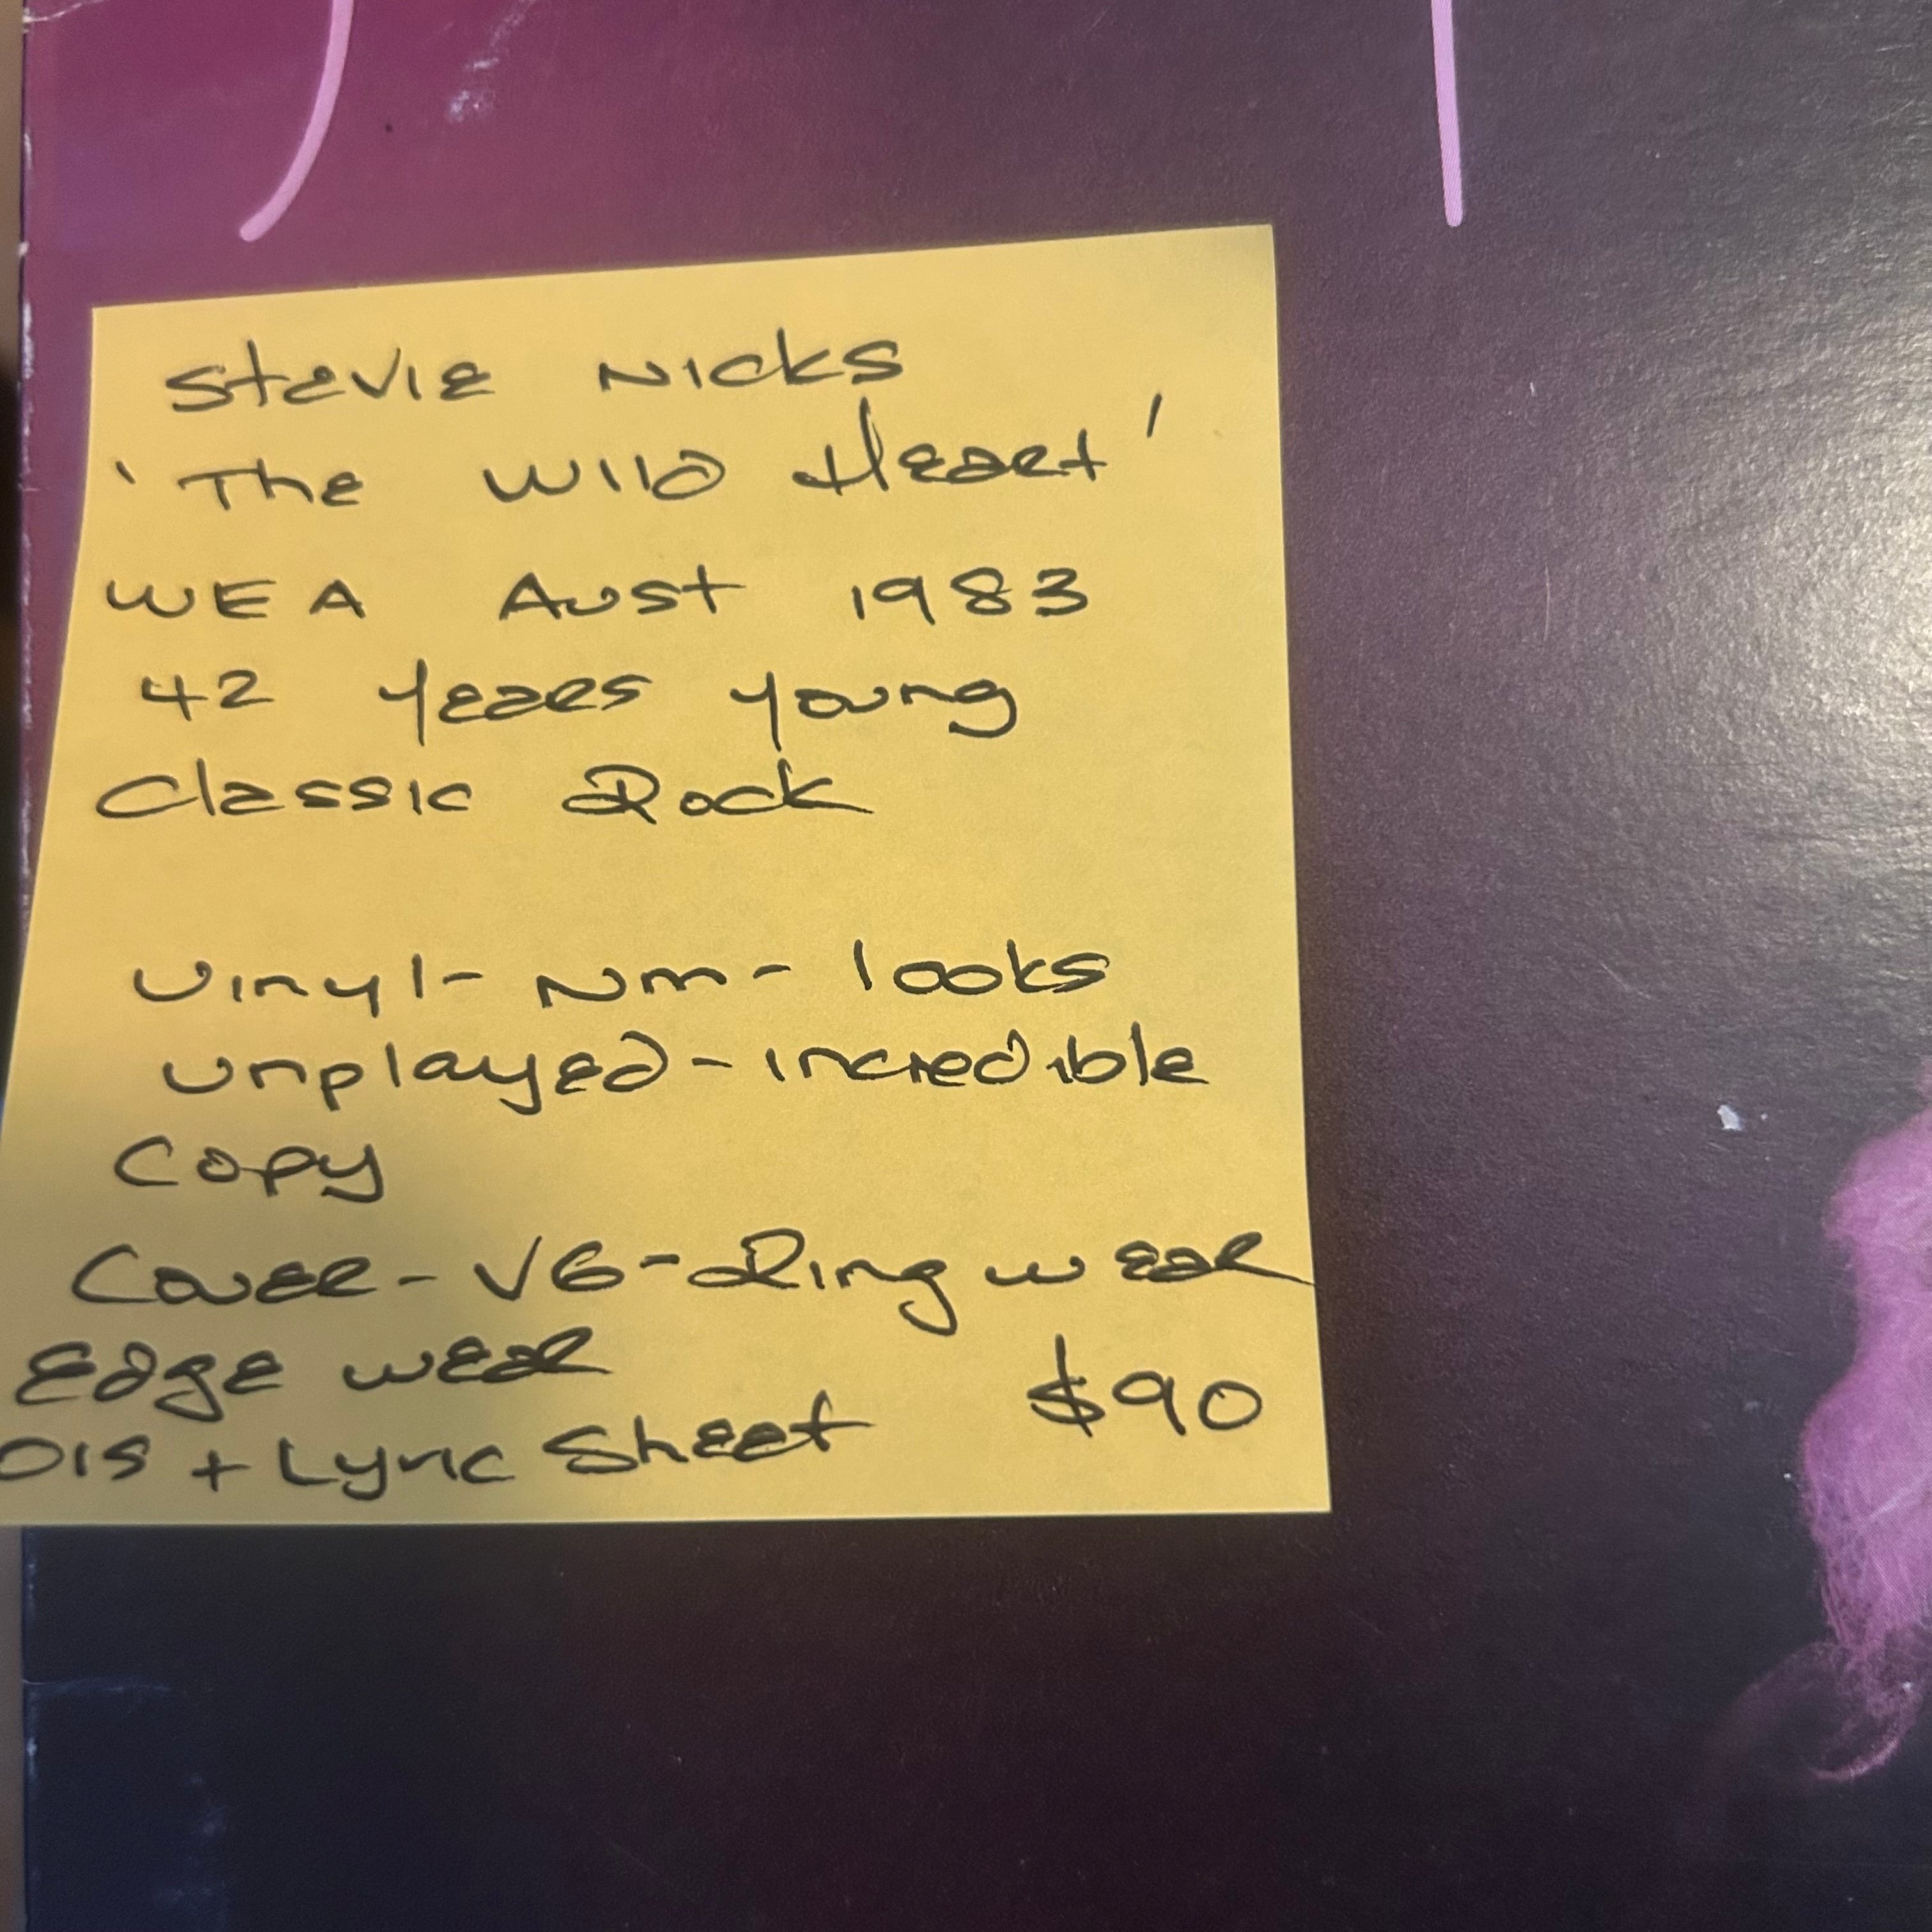 Stevie Nicks
'The Wild Heart'
WEA Aust 1983
42 years young
Classic Rock
Vinyl- Nm- looks
unplayed-incredible
Copy
Cover-VG-Ring wear
Edge wear
$90
OIS + Lyric Sheet